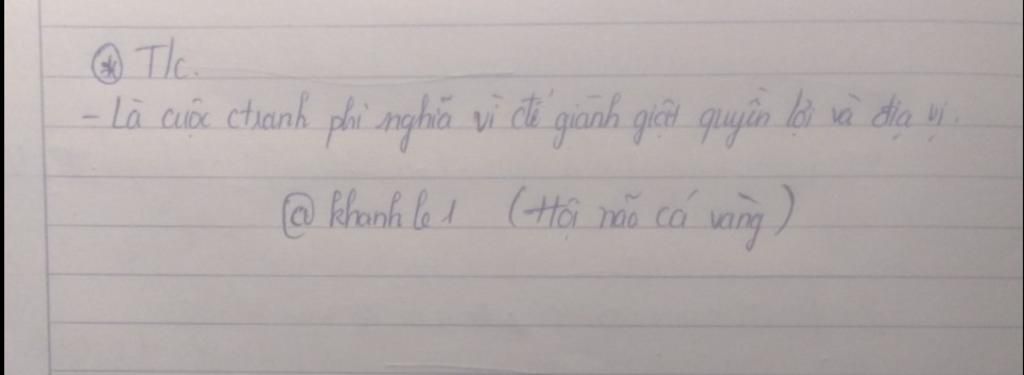 * T/c.
- Là cuộc ctranh phi nghĩa vì để giành giật quyền lợi và địa vị.
@ khanh le 1 (Hội não cá vàng)